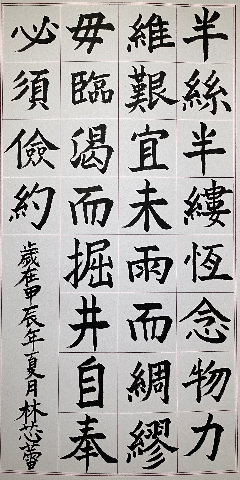 半絲半縷恆念物力
維艱宜未雨而綢繆
毋臨渴而掘井自奉
必須儉約
歲在甲辰年夏月林芯蕾